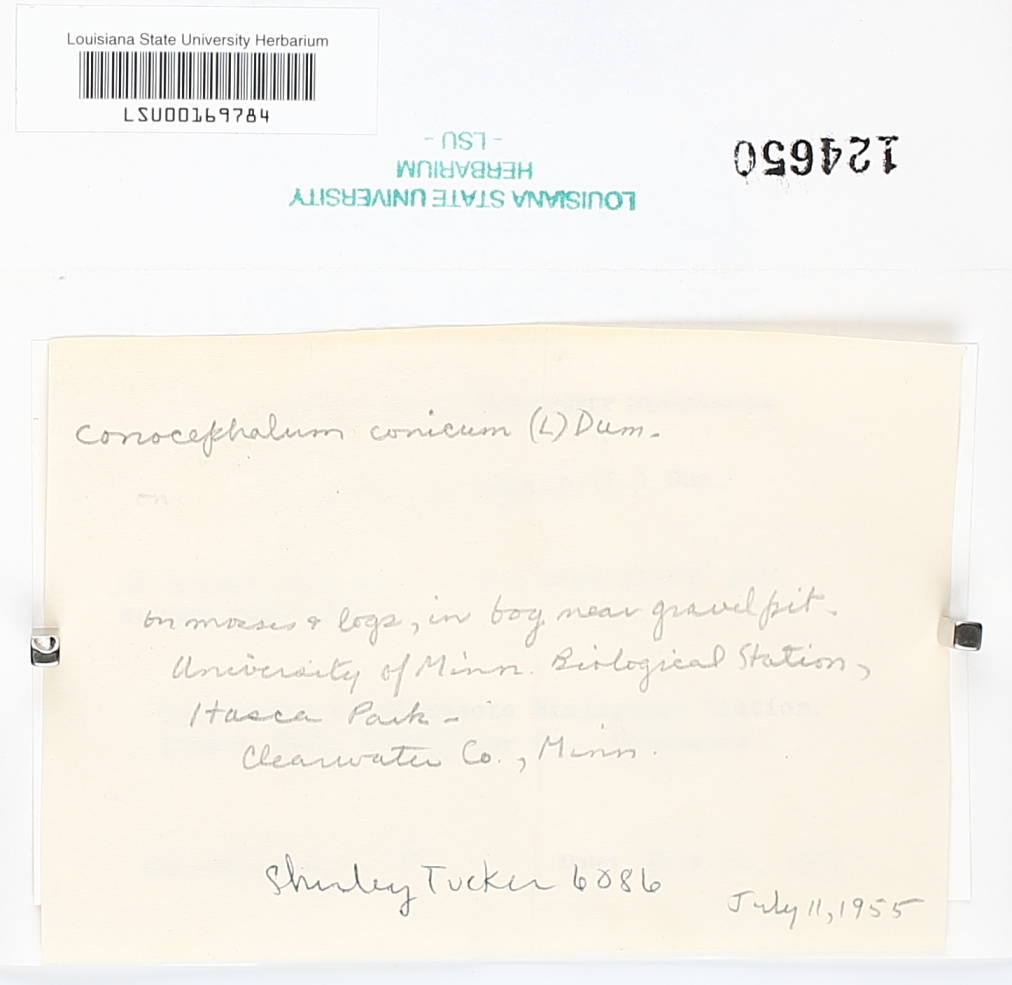 Louisiana State University Herbarium
LSU00169784
124650
LOUISIANA STATE UNIVERSITY
HERBARIUM
- LSU -
Conocephalum conicum (L) Dum.
on
on mosses & logs, in bog near gravel pit.
University of Minn. Biological Station,
Itasca Park -
Clearwater Co., Minn.
Shirley Tucker 6886
July 11, 1955